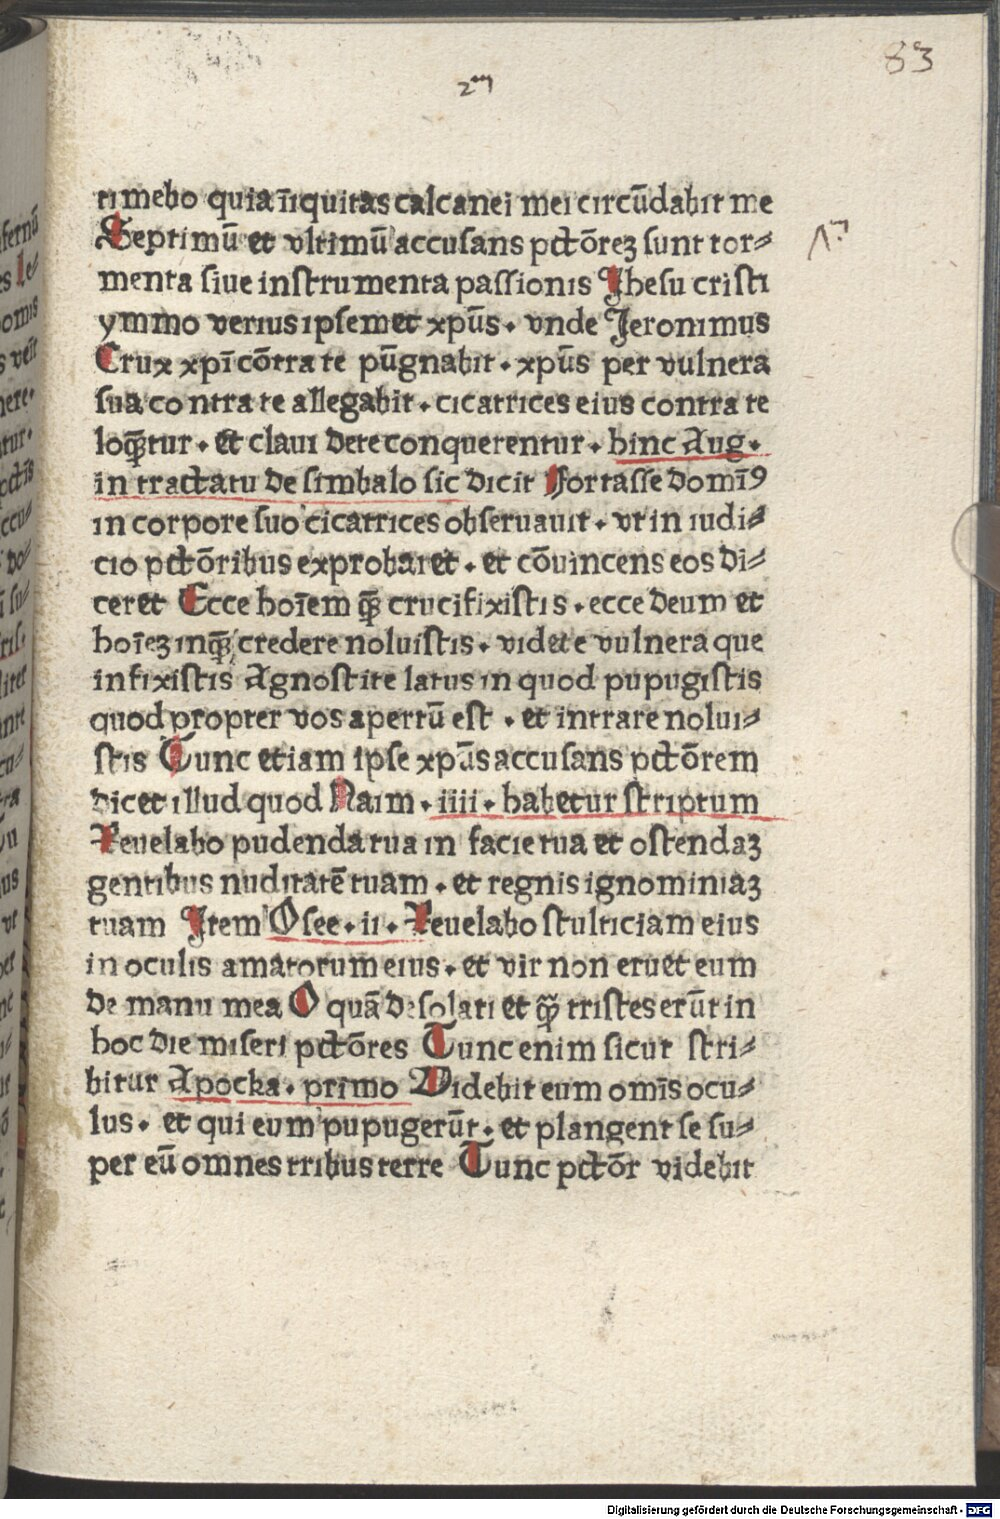 83
2
timebo quia īiquitas calcanei mei circūdabit me
Septimū et vltimū accusans pctōreȝ sunt tor⸗
menta siue instrumenta passionis Jhesu cristi
ymmo verius ipsemet xpūs. vnde Jeronimus
Crux xpī cōtra te pūgnabit. xpūs per vulnera
sua contra te allegabit. cicatrices eius contra te
loqͣ̄tur. Et claui de te conquerentur. hinc Aug.
in tractatu de simbalo sic dicit Fortasse domīꝰ
in corpore suo cicatrices obseruauit. vt in iudi⸗
cio pctōribus exprobaret. et cōuincens eos di⸗
ceret Ecce hoīem qͣ̄ crucifixistis. ecce deum et
hoīeȝ inqͣ̄ credere noluistis. videte vulnera que
infixistis Agnostite latus in quod pupugistis
quod propter vos apertū est. et intrare nolui⸗
stis Tunc etiam ipse xpūs accusans pctōrem
dicet illud quod Naım. iiii. habetur scriptum
Reuelabo pudenda tua in facie tua et ostendaȝ
gentibus nuditatē tuam. et regnis ignominiaȝ
tuam Item Osee. ii. Reuelabo stulticiam eius
in oculis amatorum eius. et vir non eruet eum
de manu mea O quā desolati et qͣ̄ tristes erūt in
hoc die miseri pctōres Tunc enim sicut stri⸗
bitur Apocka. primo Videbit eum omīs ocu⸗
lus. et qui eum pupugerūt. et plangent se su⸗
per eū omnes tribus terre Tunc pctōr videbit
Digitalisierung gefördert durch die Deutsche Forschungsgemeinschaft - DFG